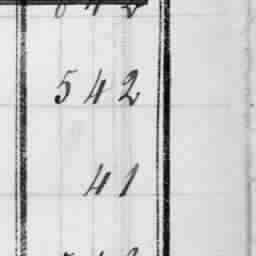 542
41